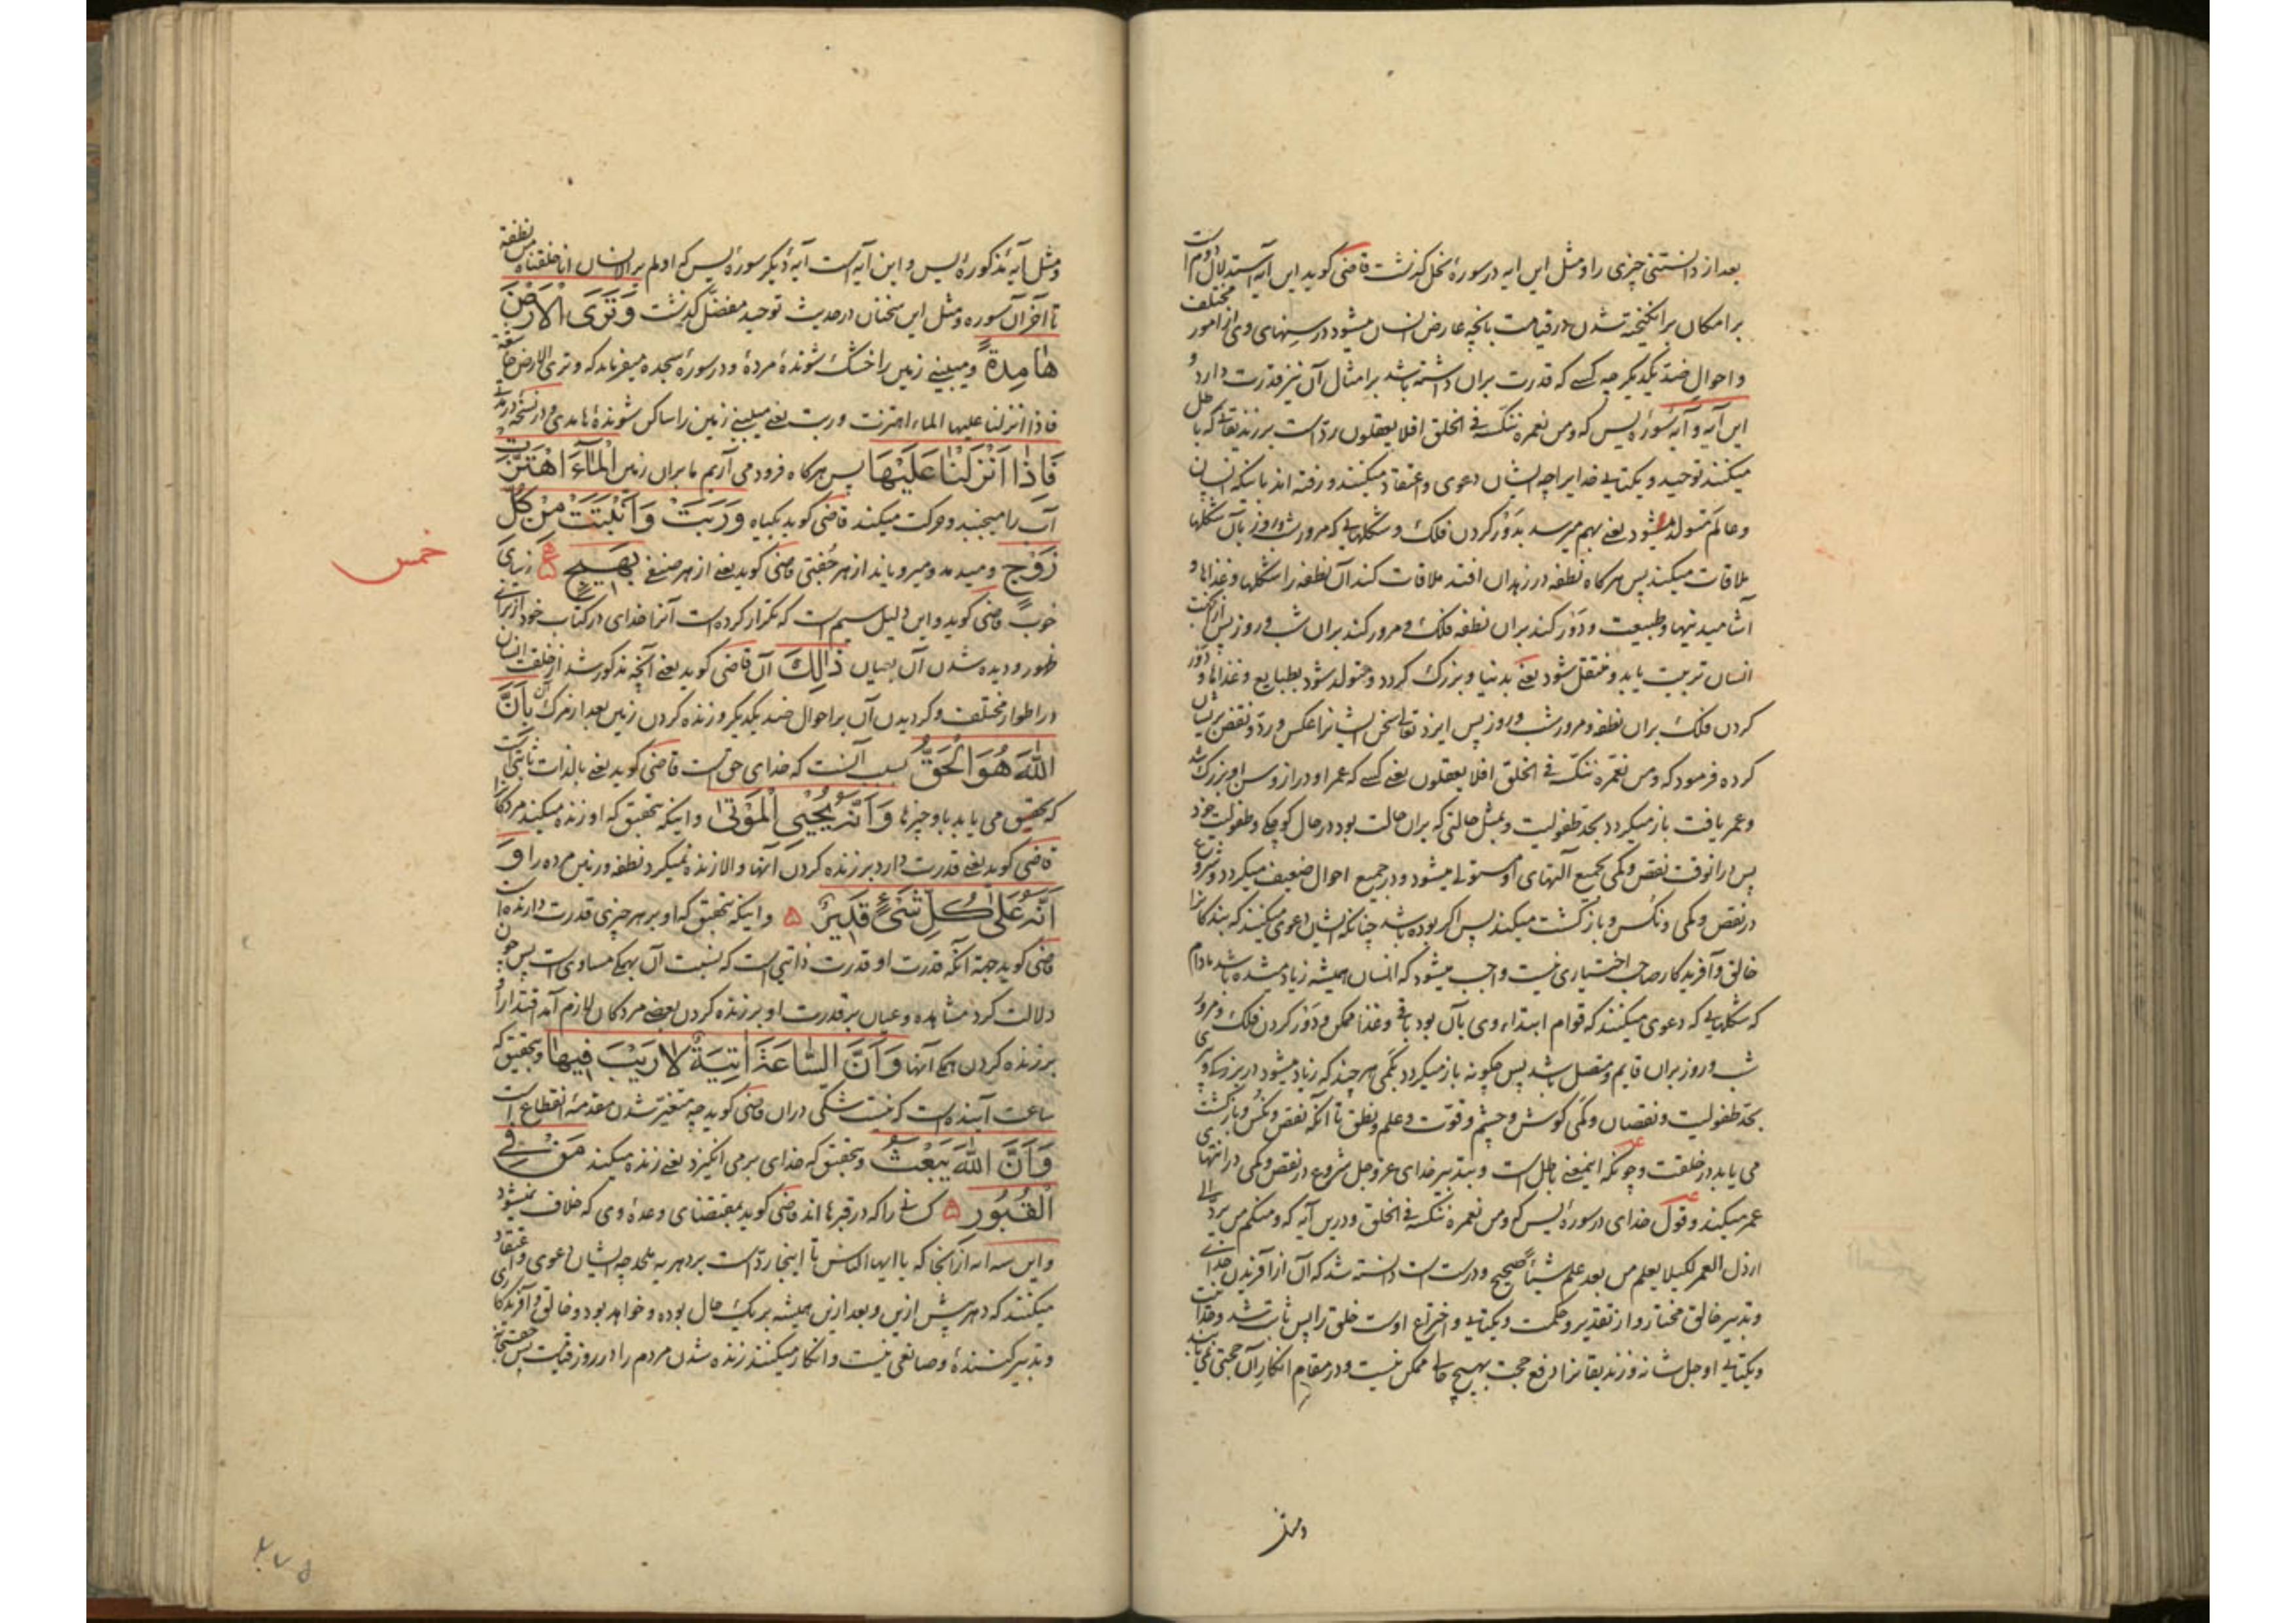 بعد از دانستنی چیزی را و مثل این ایه در سورهٔ نحل کذشت قاضی کوید این آیه استدلال دوم است
بر امکان برانکیخته شدن در قیامت بانچه عارض انسان میشود در سنهای وی از امور مختلف
و احوال ضد یکدیکر چه کسی که قدرت بران داشته باشد بر امثال آن نیز قدرت دارد و
این آیه و آیهٔ سورهٔ یس که و من نعمره ننکسه فی الخلق افلا یعقلون رد است بر زندیقانی که باطل
میکنند توحید و یکتایی خدایرا چه ایشان دعوی و اعتقاد میکنند و رفته اند باینکه انسان
و عالم متولد میشود یعنی بهم میرسد بدور کردن فلک و شکلهایی که مرور شب و روز بآن شکلها
ملاقات میکند پس هرکاه نطفه در زهدان افتد ملاقات کند آن نطفه را شکلها و غذاها و
آشامیدنیها و طبیعت و دور کند بران نطفه فلک و مرور کند بران شب و روز پس ازینجهت
انسان تربیت یابد و منتقل شود یعنی بدنیا و بزرک کردد و متولد شود بطبایع و غذاها و دور
کردن فلک بران نطفه و مرور شب و روز پس ایزد تعالی سخن ایشانرا عکس و رد و نقض بریشان
کرده فرمود که و من نعمره ننکسه فی الخلق افلا یعقلون یعنی کسی که عمر او دراز و سن او بزرک شد
و عمر یافت باز میکردد بحد طفولیت و بمثل حالتی که بران حالت بود در حال کوچکی و طفولیت خود
پس درانوقت نقص و کمی بجمیع آلتهای او مستولی میشود و در جمیع احوال ضعیف میکردد و شروع
در نقص و کمی و نکس و بازکشت میکند پس اکر بوده باشد چنانکه ایشان دعوی میکنند که بندکانرا
خالق و آفریدکار صاحب اختیاری نیست واجب میشود که انسان همیشه زیاد میشده باشد مادام
که شکلهایی که دعوی میکنند که قوام ابتداء وی بآن بود باقی و غذا ممکن و دور کردن فلک و مرور
شب و روز بران قایم و متصل باشد پس چکونه باز میکردد بکمی هرچند که زیاد میشود در بزرکی و پیری
بحد طفولیت و نقصان و کمی کوش و چشم و قوت و علم و نطق تا آنکه نقص و نکس و بازکشت
می یابد در خلقت و چونکه اینمعنی باطل است و بتدبیر خدای عز و جل شروع در نقص و کمی در انتهای
عمر میکند و قول خدای در سورهٔ یس که و من نعمره ننکسه فی الخلق و درین آیه که و منکم من یرد الی
ارذل العمر لکیلا یعلم من بعد علم شیئا صحیح و درست است دانسته شد که آن از آفریدن خدای
و تدبیر خالق مختار و از تقدیر و حکمت و یکتایی و اختراع اوست خلق را پس ثابت شد وحدانیت
و یکتایی او جل شانه و زندیقانرا دفع حجت بهیچ حالی ممکن نیست و در مقام انکار آن حجتی نمی یابند
و مثل آیهٔ مذکورهٔ یس و این آیه است آیهٔ دیکر سورهٔ یس که اولم یر الانسان انا خلقناه من نطفة
تا آخر آن سوره و مثل این سخنان در حدیث توحید مفضل کذشت وَتَرَى الْاَرْضَ
هَامِدَةً و میبینی زمین را خشک شونده مرده و در سورهٔ سجده میفرماید که و تری الارض خاشعة
فاذا انزلنا علیها الماء اهتزت و ربت یعنی میبینی زمین را ساکن شونده
فَاِذَا اَنْزَلْنَا عَلَيْهَا پس هرکاه فرود می آریم ما بران زمین الْمَاءَ اهْتَزَّتْ
آب را میجنبد و حرکت میکند قاضی کوید بکیاه وَرَبَتْ وَاَنْبَتَتْ مِنْ كُلِّ
زَوْجٍ و میدمد و میرویاند از هر جفتی قاضی کوید یعنی از هر صنفی بَهِيجٍ ۵ زیبای
خوب قاضی کوید و این دلیل سیم است که تکرار کرده است آنرا خدای در کتاب خود از برای
ظهور و دیده شدن آن بعیان ذٰلِكَ آن قاضی کوید یعنی آنچه مذکور شد از خلقت انسان
در اطوار مختلف و کردیدن آن بر احوال ضد یکدیکر و زنده کردن زمین بعد از مرک آن بِاَنَّ
اللّٰهَ هُوَ الْحَقُّ بسبب آنست که خدای حق است قاضی کوید یعنی بالذات ثابتی است
که تحقیق می یابد باو چیزها وَاَنَّهُ يُحْيِي الْمَوْتٰى و اینکه بتحقیق که او زنده میکند مردکانرا
قاضی کوید یعنی قدرت دارد بر زنده کردن آنها و الا زنده نمیکرد نطفه و زمین مرده را وَ
اَنَّهُ عَلٰى كُلِّ شَيْءٍ قَدِيرٌ ۵ و اینکه بتحقیق که او بر هر چیزی قدرت دارنده است
قاضی کوید جهة آنکه قدرت او قدرت ذاتی است که نسبت آن بهمکی مساوی است پس چون
دلالت کرد مشاهده و عیان بر قدرت او بر زنده کردن بعضی مردکان لازم آمد اقتدار او
بر زنده کردن همکی آنها وَاَنَّ السَّاعَةَ اٰتِيَةٌ لَا رَيْبَ فِيهَا و بتحقیق که
ساعت آینده است که نیست شکی دران قاضی کوید چه متغیر شدن مقدمهٔ انقطاع است
وَاَنَّ اللّٰهَ يَبْعَثُ و بتحقیق که خدای برمی انکیزد یعنی زنده میکند مَنْ فِي
الْقُبُورِ ۵ کسانی را که در قبرها اند قاضی کوید بمقتضای وعدهٔ وی که خلاف نمیشود
و این سه ایه از آنجا که یا ایها الناس تا اینجا رد است بر دهریه ملحد چه ایشان دعوی و اعتقاد
میکنند که دهر پیش ازین و بعد ازین همیشه بر یک حال بوده و خواهد بود و خالق و آفریدکاری
و تدبیر کننده و صانعی نیست و انکار میکنند زنده شدن مردم را در روز قیامت پس
خمس